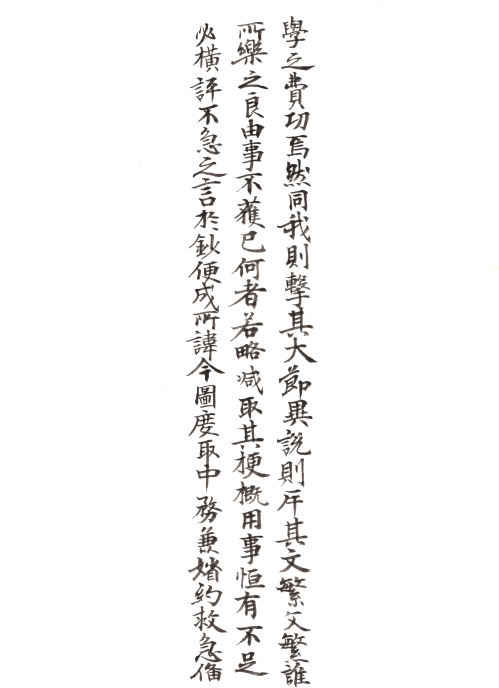 學之費功焉然同我則擊其大節異說則斥其文繁文繁誰
所樂之良由事不獲已何者若略减取其梗概用事恒有不足
必橫評不急之言於鈔便成所諱今圖度取中務兼婧約救急備